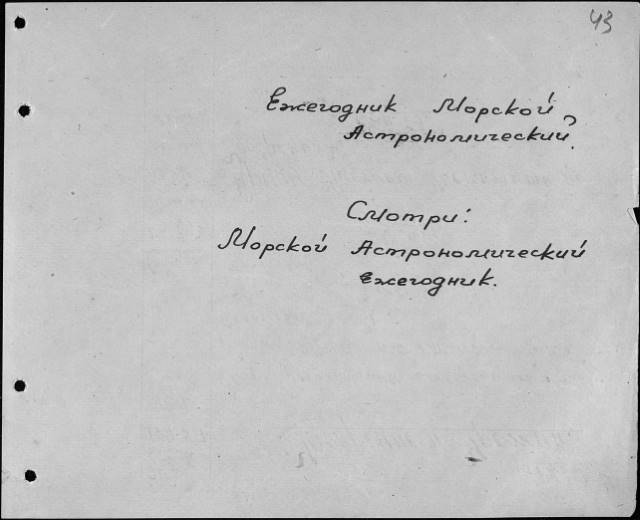 43
Ежегодник Морской
Астрономический.
Смотри:
Морской Астрономический
Ежегодник.